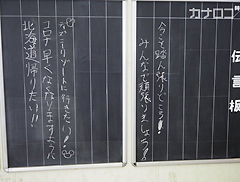 カナロコ
伝言板
今こそ踏ん張りどころ!!
みんなで頑張りましょう!!
ディズニーリゾートに行きたい!
コロナ早くなくなりますように
北海道帰りたい!!